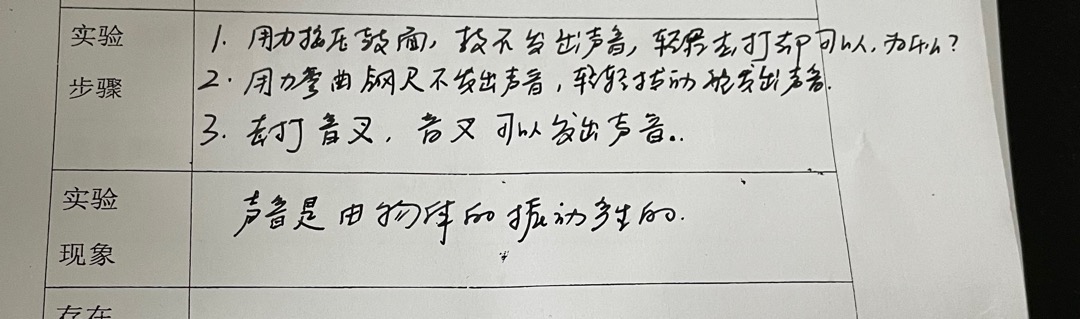 实验
步骤
1. 用力按压鼓面，鼓不发出声音，轻轻击打却可以，为什么？
2. 用力弯曲钢尺不发出声音，轻轻拨动能发出声音.
3. 击打音叉，音叉可以发出声音..
实验
现象
声音是由物体的振动产生的.
存在